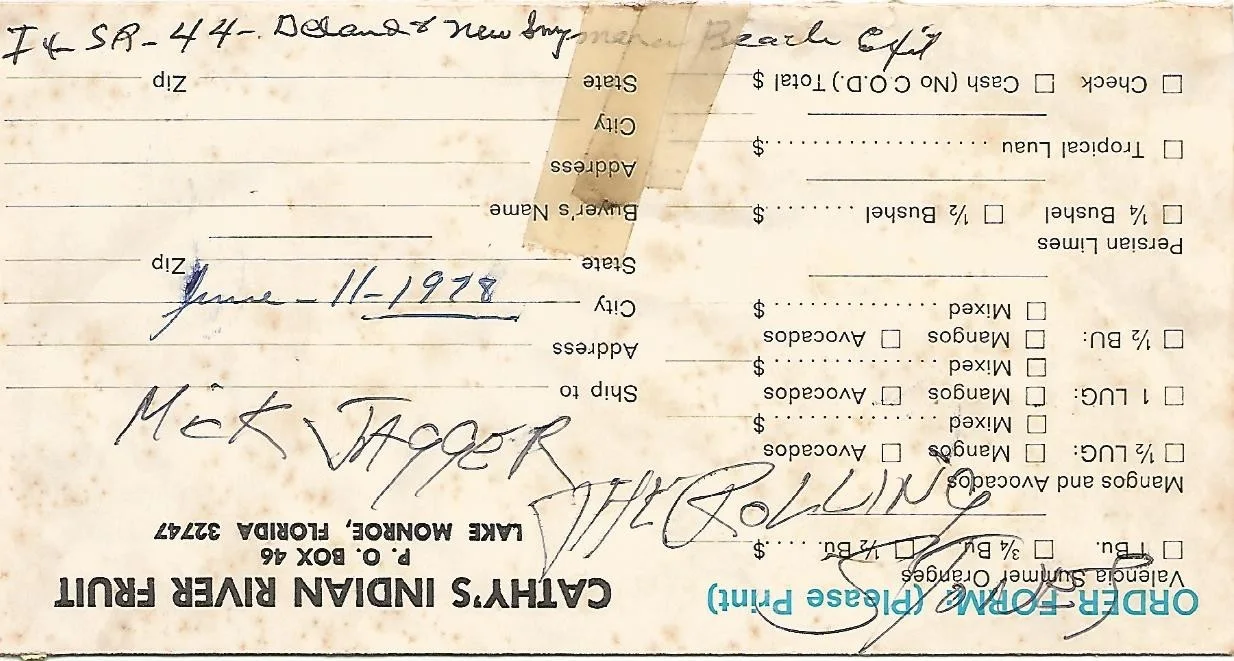 I4 SR-44- Deland & New Smyrna Beach Exit
June-11-1978
Mick JAGGER
THE ROLLING
STONES
ORDER FORM: (Please Print)
Valencia Summer Oranges
☐ 1 Bu. ☐ ¾ Bu. ☐ ½ Bu. .....$
Mangos and Avocados
☐ ½ LUG: ☐ Mangos ☐ Avocados
☐ Mixed ....................$
☐ 1 LUG: ☐ Mangos ☐ Avocados
☐ Mixed ....................$
☐ ½ BU: ☐ Mangos ☐ Avocados
☐ Mixed ....................$
Persian Limes
☐ ¼ Bushel ☐ ½ Bushel ........$
☐ Tropical Luau ....................$
☐ Check ☐ Cash (No C.O.D.) Total $
CATHY'S INDIAN RIVER FRUIT
P. O. BOX 46
LAKE MONROE, FLORIDA 32747
Ship to
Address
City
State Zip
Buyer's Name
Address
City
State Zip